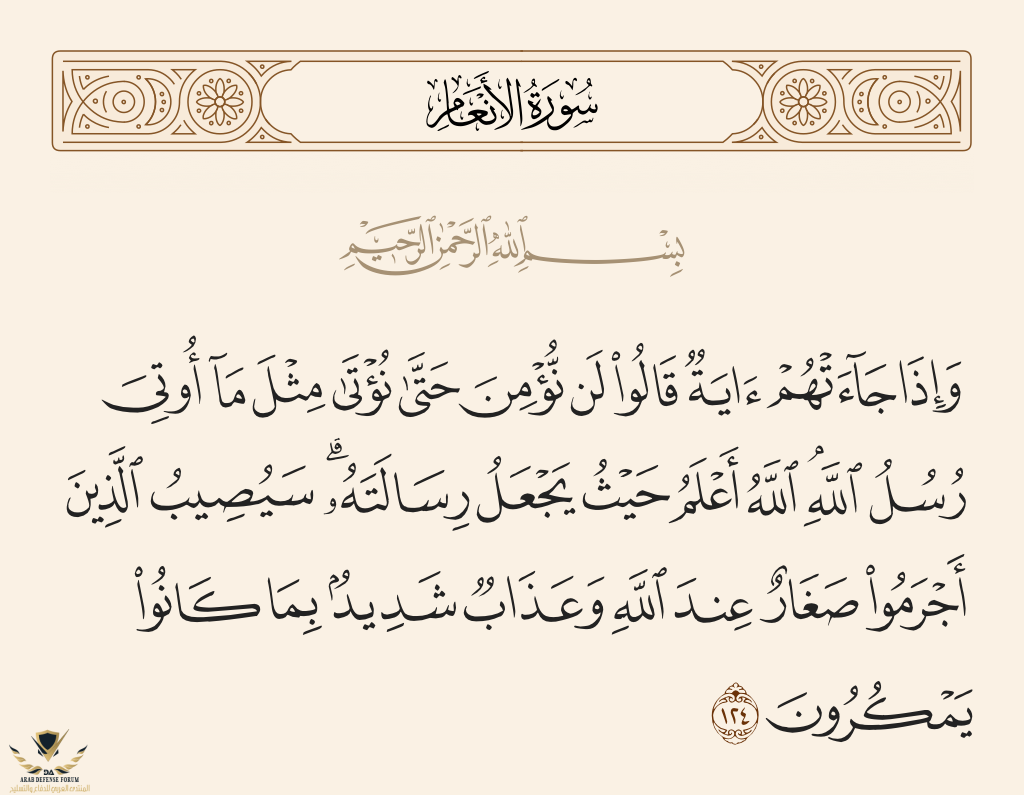 سُورَةُ الأَنْعَامِ
بِسْمِ ٱللَّهِ ٱلرَّحْمَٰنِ ٱلرَّحِيمِ
وَإِذَا جَآءَتْهُمْ ءَايَةٌ قَالُوا۟ لَن نُّؤْمِنَ حَتَّىٰ نُؤْتَىٰ مِثْلَ مَآ أُوتِىَ
رُسُلُ ٱللَّهِ ۘ ٱللَّهُ أَعْلَمُ حَيْثُ يَجْعَلُ رِسَالَتَهُۥ ۗ سَيُصِيبُ ٱلَّذِينَ
أَجْرَمُوا۟ صَغَارٌ عِندَ ٱللَّهِ وَعَذَابٌ شَدِيدٌۢ بِمَا كَانُوا۟
يَمْكُرُونَ ١٢٤
ARAB DEFENSE FORUM
المنتدى العربي للدفاع والتسليح